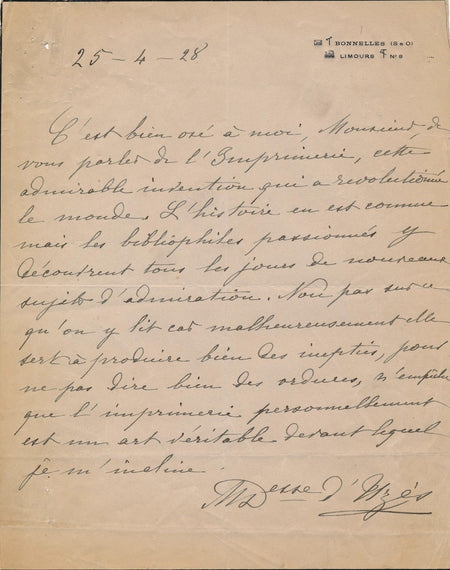 25-4-28
T BONNELLES (S & O)
LIMOURS T N° 9
C'est bien osé à moi, Monsieur, de
vous parler de l'Imprimerie, cette
admirable invention qui a revolutionné
le monde. L'histoire en est connue
mais les bibliophiles passionnés y
découvrent tous les jours de nouveaux
sujets d'admiration. Non pas sur ce
qu'on y lit car malheureusement elle
sert à produire bien des inepties, pour
ne pas dire bien des ordures, n'empêche
que l'imprimerie personnellement
est un art véritable devant lequel
je m'incline.
Desse d'Uzès